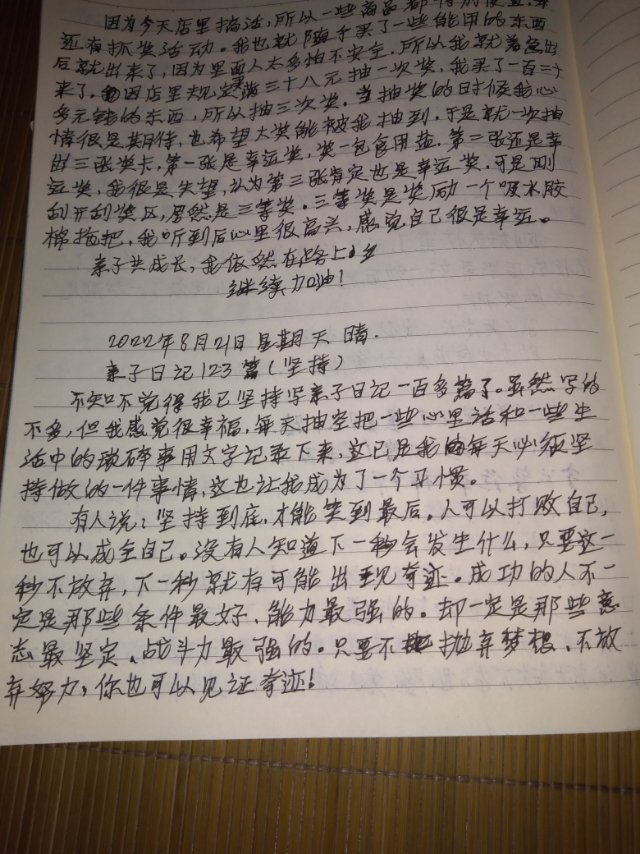 因为今天店里搞活,所以一些商品都特别便宜.
还有抓奖活动。我也就随手买了一些能用的东西
后就出来了,因为里面人太多怕不安全.所以我就着急出
来了.因店里规定满三十八元抽一次奖,我买了一百三十
多元钱的东西,所以抽三次奖.当抽奖的时候我心
情很是期待,也希望大奖能被我抽到.于是就一次抽
出三张奖卡,第一张是幸运奖,奖一包食用盐.第二张还是幸
运奖,我很是失望,认为第三张肯定也是幸运奖.可是刚
刮开刮奖区,居然是三等奖.三等奖是奖励一个吸水胶
棉拖把,我听到后心里很高兴,感觉自己很是幸运。
亲子共成长,我依然在路上
继续加油!
2022年8月21日 星期天 晴.
亲子日记123篇(坚持)
不知不觉得我已坚持写亲子日记一百多篇了。虽然写的
不多,但我感觉很幸福,每天抽空把一些心里话和一些生
活中的琐碎事用文字记录下来,这已是我的每天必须坚
持做的一件事情,这也让我成为了一个习惯。
有人说:坚持到底,才能笑到最后。人可以打败自己,
也可以成全自己。没有人知道下一秒会发生什么,只要这一
秒不放弃,下一秒就有可能出现奇迹。成功的人不一
定是那些条件最好、能力最强的.却一定是那些意
志最坚定、战斗力最强的。只要不抛弃梦想、不放
弃努力,你也可以见证奇迹!